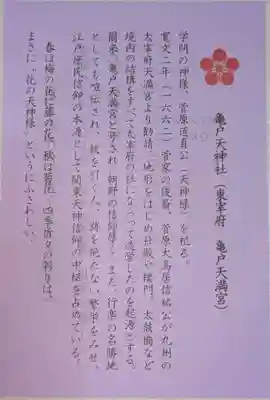 亀戸天神社（東宰府　亀戸天満宮）
学問の神様、菅原道真公（天神様）を祀る。
寛文二年（一六六二）菅家の後裔、菅原大鳥居信祐公が九州の
太宰府天満宮より勧請、地形をはじめ社殿や楼門、太鼓橋など
境内の結構をすべて太宰府の社にならって造営したのを起源とする。
爾来、亀戸天満宮と号され、朝野の信仰厚く、また、行楽の名勝地
としても喧伝され、杖を引く人、跡を絶たない繁栄をみせ、
江戸庶民信仰の本源として関東天神信仰の中枢を占めている。
春は梅の花に藤の花、秋は菊花、四季折々の彩りは、
まさに〝花の天神様〟というにふさわしい。